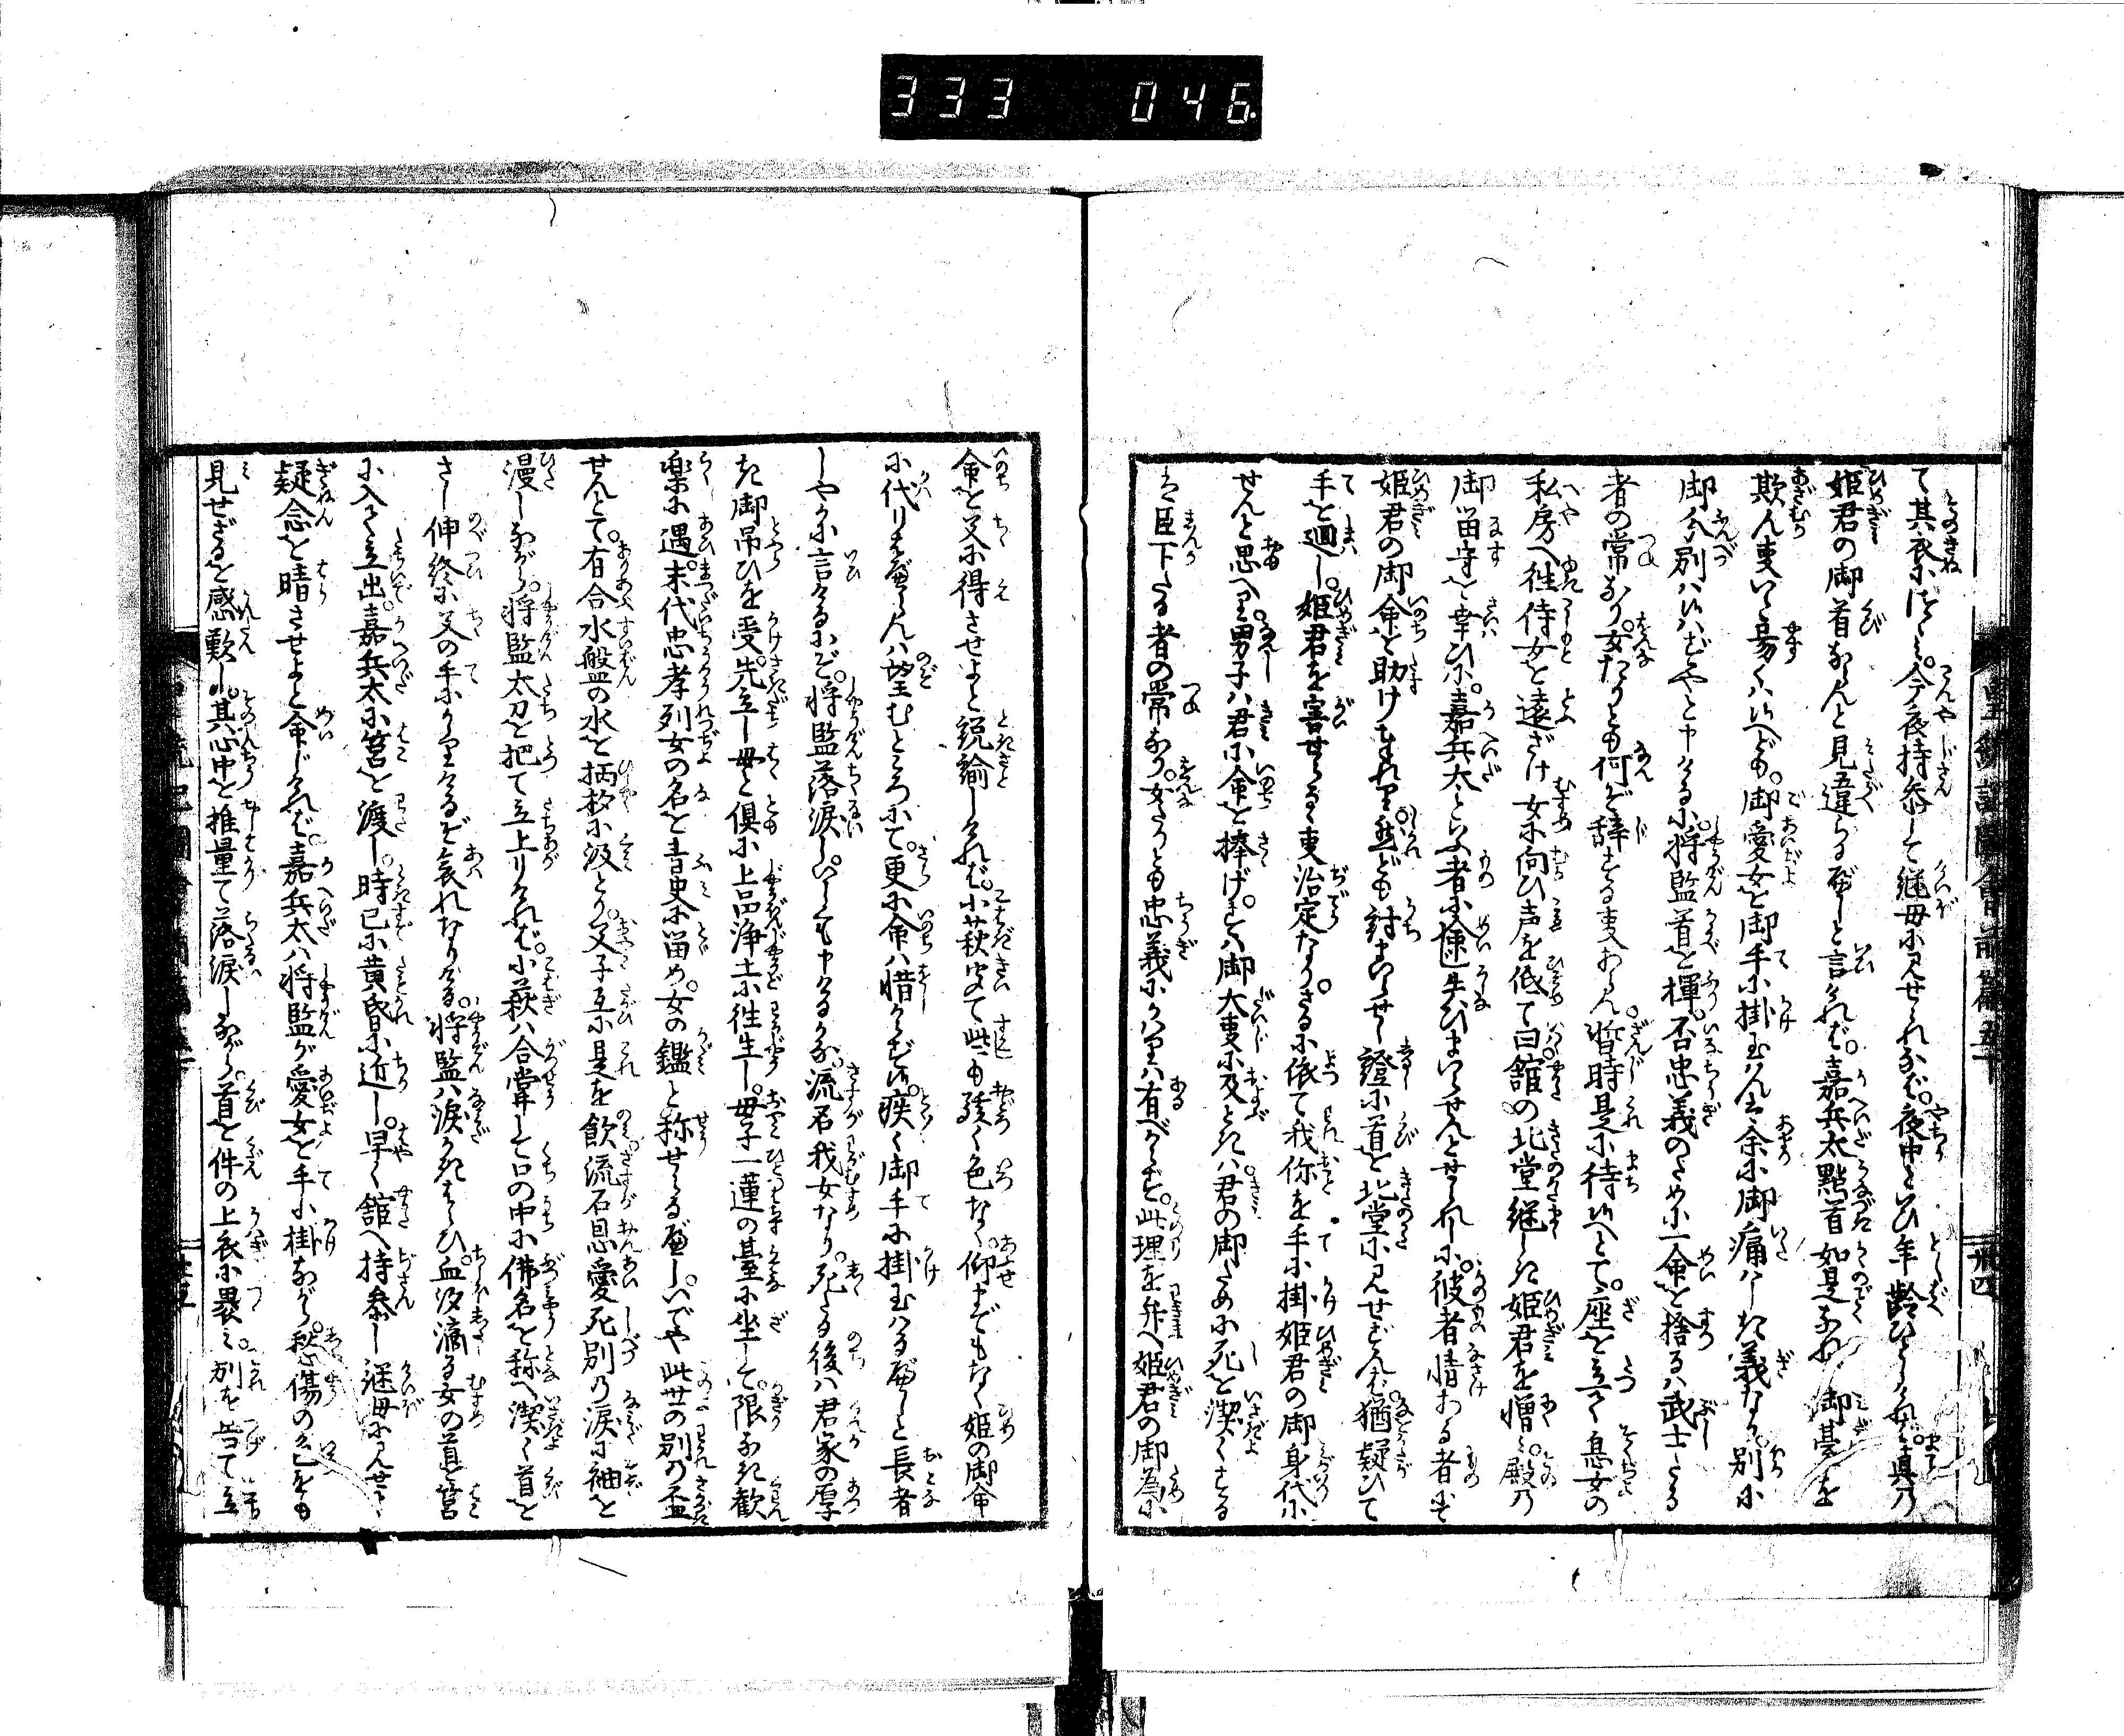 333 046
て其衣に認み。今夜持参して継母に見せられなバ。夜中といひ年齢ひとしけれバ。真乃
姫君の御首ならんと見違らるべしと言けれバ。嘉兵太點首如是なれバ御臺を
欺ん事いと易くハ候へども。御愛女を御手に掛玉ハん事余に御痛ハしき義なり。別に
御分別ハ候ハずやと申けるに。将監首を揮。否忠義のために一命を捨るハ武士たる
者の常なり。女たりとも何ぞ辞する事あらん。暫時是に待候へとて。座を立て息女の
私房へ徃侍女を遠ざけ女に向ひ声を低て曰。舘の北堂継しき姫君を憎ミ。殿乃
御畄守を幸ひに。嘉兵太といふ者に命じ失ひまいらせんとせられしに。彼者情ある者にて
姫君の御命を助けまいれり。然ども討まいらせし證に首を北堂に見せずんバ。猶疑ひて
手を廻し。姫君を害せらるゝ事治定なり。さるに依て我你を手に掛姫君の御身代に
せんと思へり。男子ハ君に命を捧げ。すハ御大事に及ときハ。君の御ために死を潔くする
を臣下たる者の常なり。女たりとも忠義にかハりハ有べからず。此理を弁へ姫君の御為に
命を父に得させよと説諭しけれバ。小萩聞て些も驚く色なく。仰までもなく姫の御命
に代りまいらせんハ望むところにて。更に命ハ惜からず候。疾く御手に掛玉ハるべしと長者
しやかに言けるにぞ。将監落涙し。いしくも申けるかな。流石我女なり。死たる後ハ君家の厚
き御吊ひを受。先立し母と倶に上品浄土に徃生し。母子一蓮の臺に坐して。限なき歓
楽に遇。末代忠孝列女の名を青史に畄め。女の鑑と称せらるべし。いでや此世の別乃盃
せんとて。有合水盤の水を柄杓に汲とり。父子互に是を飲。流石恩愛死別の涙に袖を
漫しながら。将監太刀を把て立上りけれバ。小萩ハ合掌して口の中に佛名を称へ潔く首を
さし伸終に父の手にかゝりけるぞ哀れなりける。将監ハ涙かきはらひ。血汐滴る女の首を筥
に入て立出。嘉兵太に筥を渡し。時已に黄昏に近し。早く舘へ持参し継母に見せて
疑念を晴させよと命じけれバ。嘉兵太ハ将監が愛女を手に掛ながら。愁傷の色をも
見せざるを感歎し。其心中を推量て落涙しながら。首を件の上衣に裹ミ。別を告て立